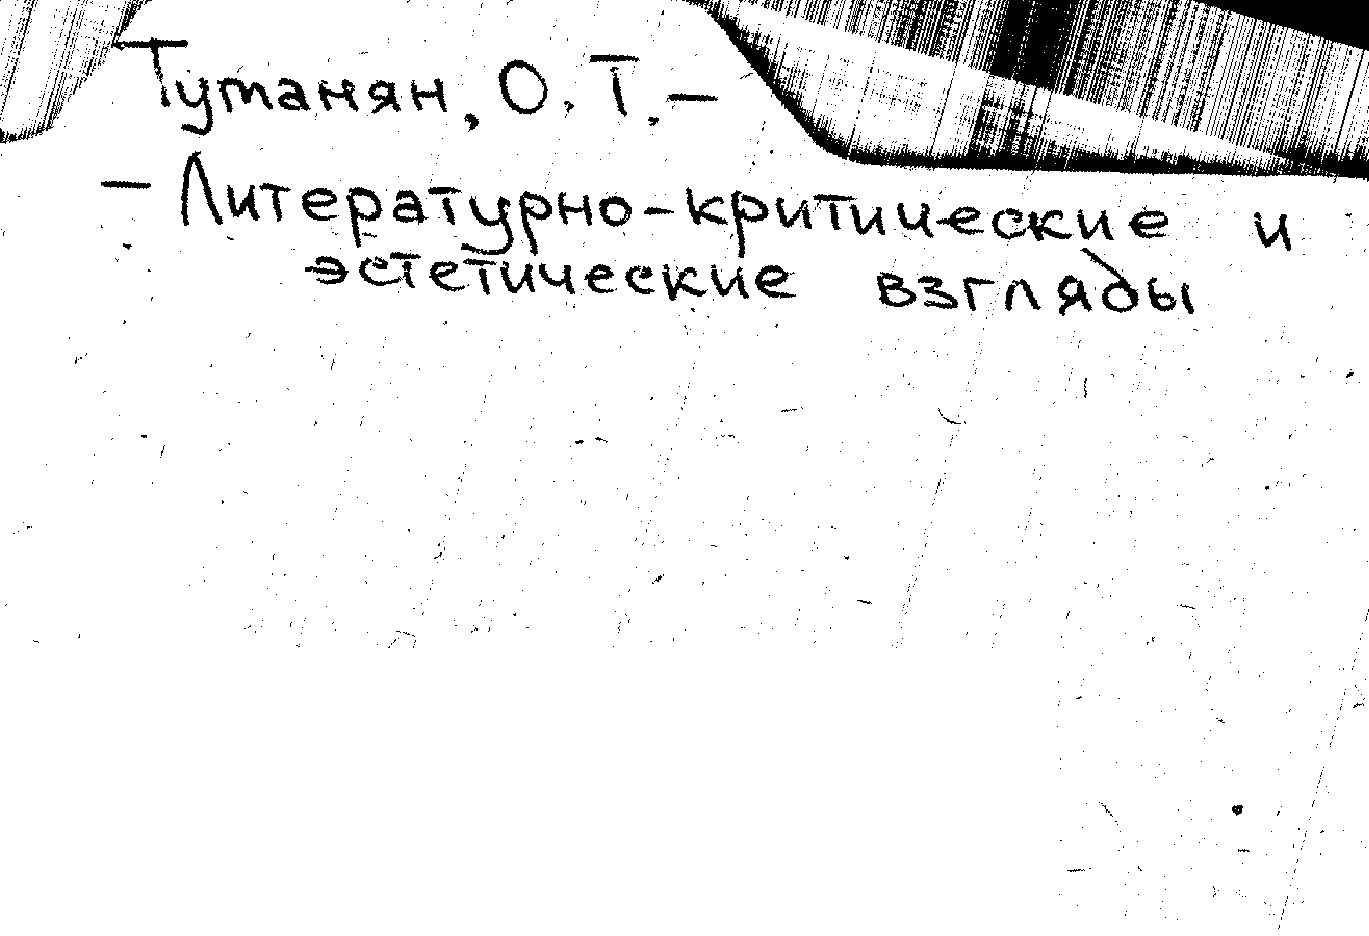 Туманян, О. Т. –
– Литературно-критические и
эстетические взгляды